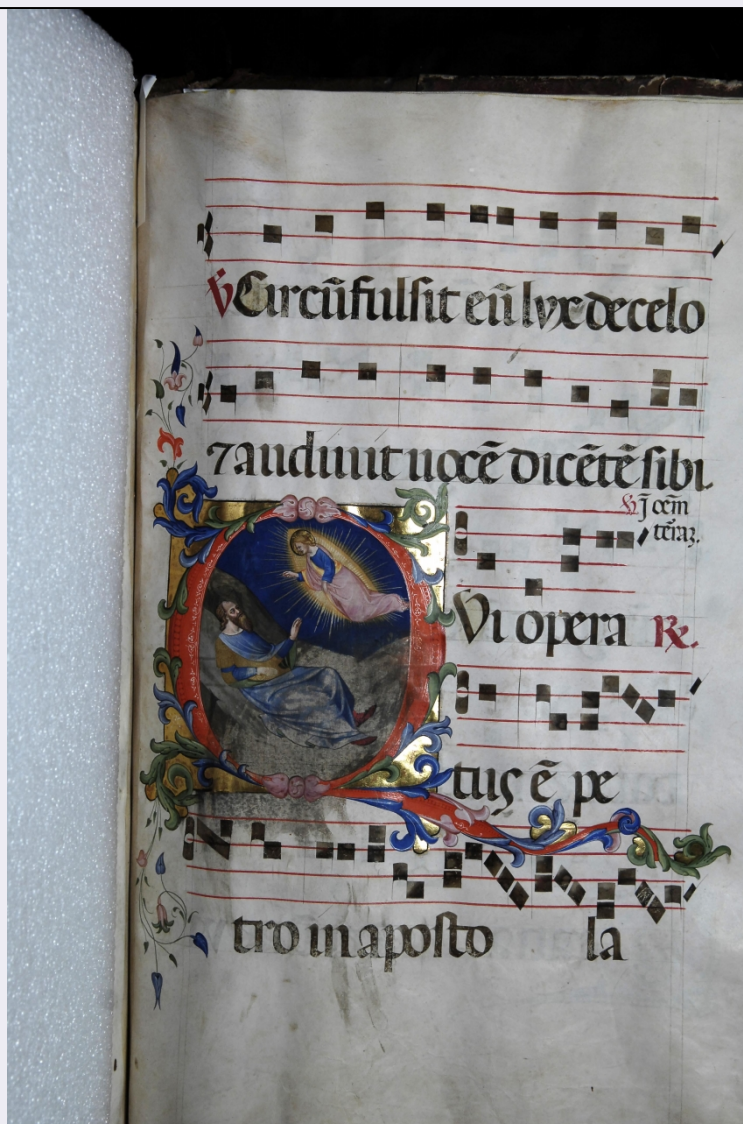 ℣ Circũfulsit eũ lvx de celo
⁊ audiuit uocẽ dicẽtẽ sibi.
℣ J oẽm
tẽraꝫ.
Qui opera ℟.
tus ẽ pe
tro in aposto la